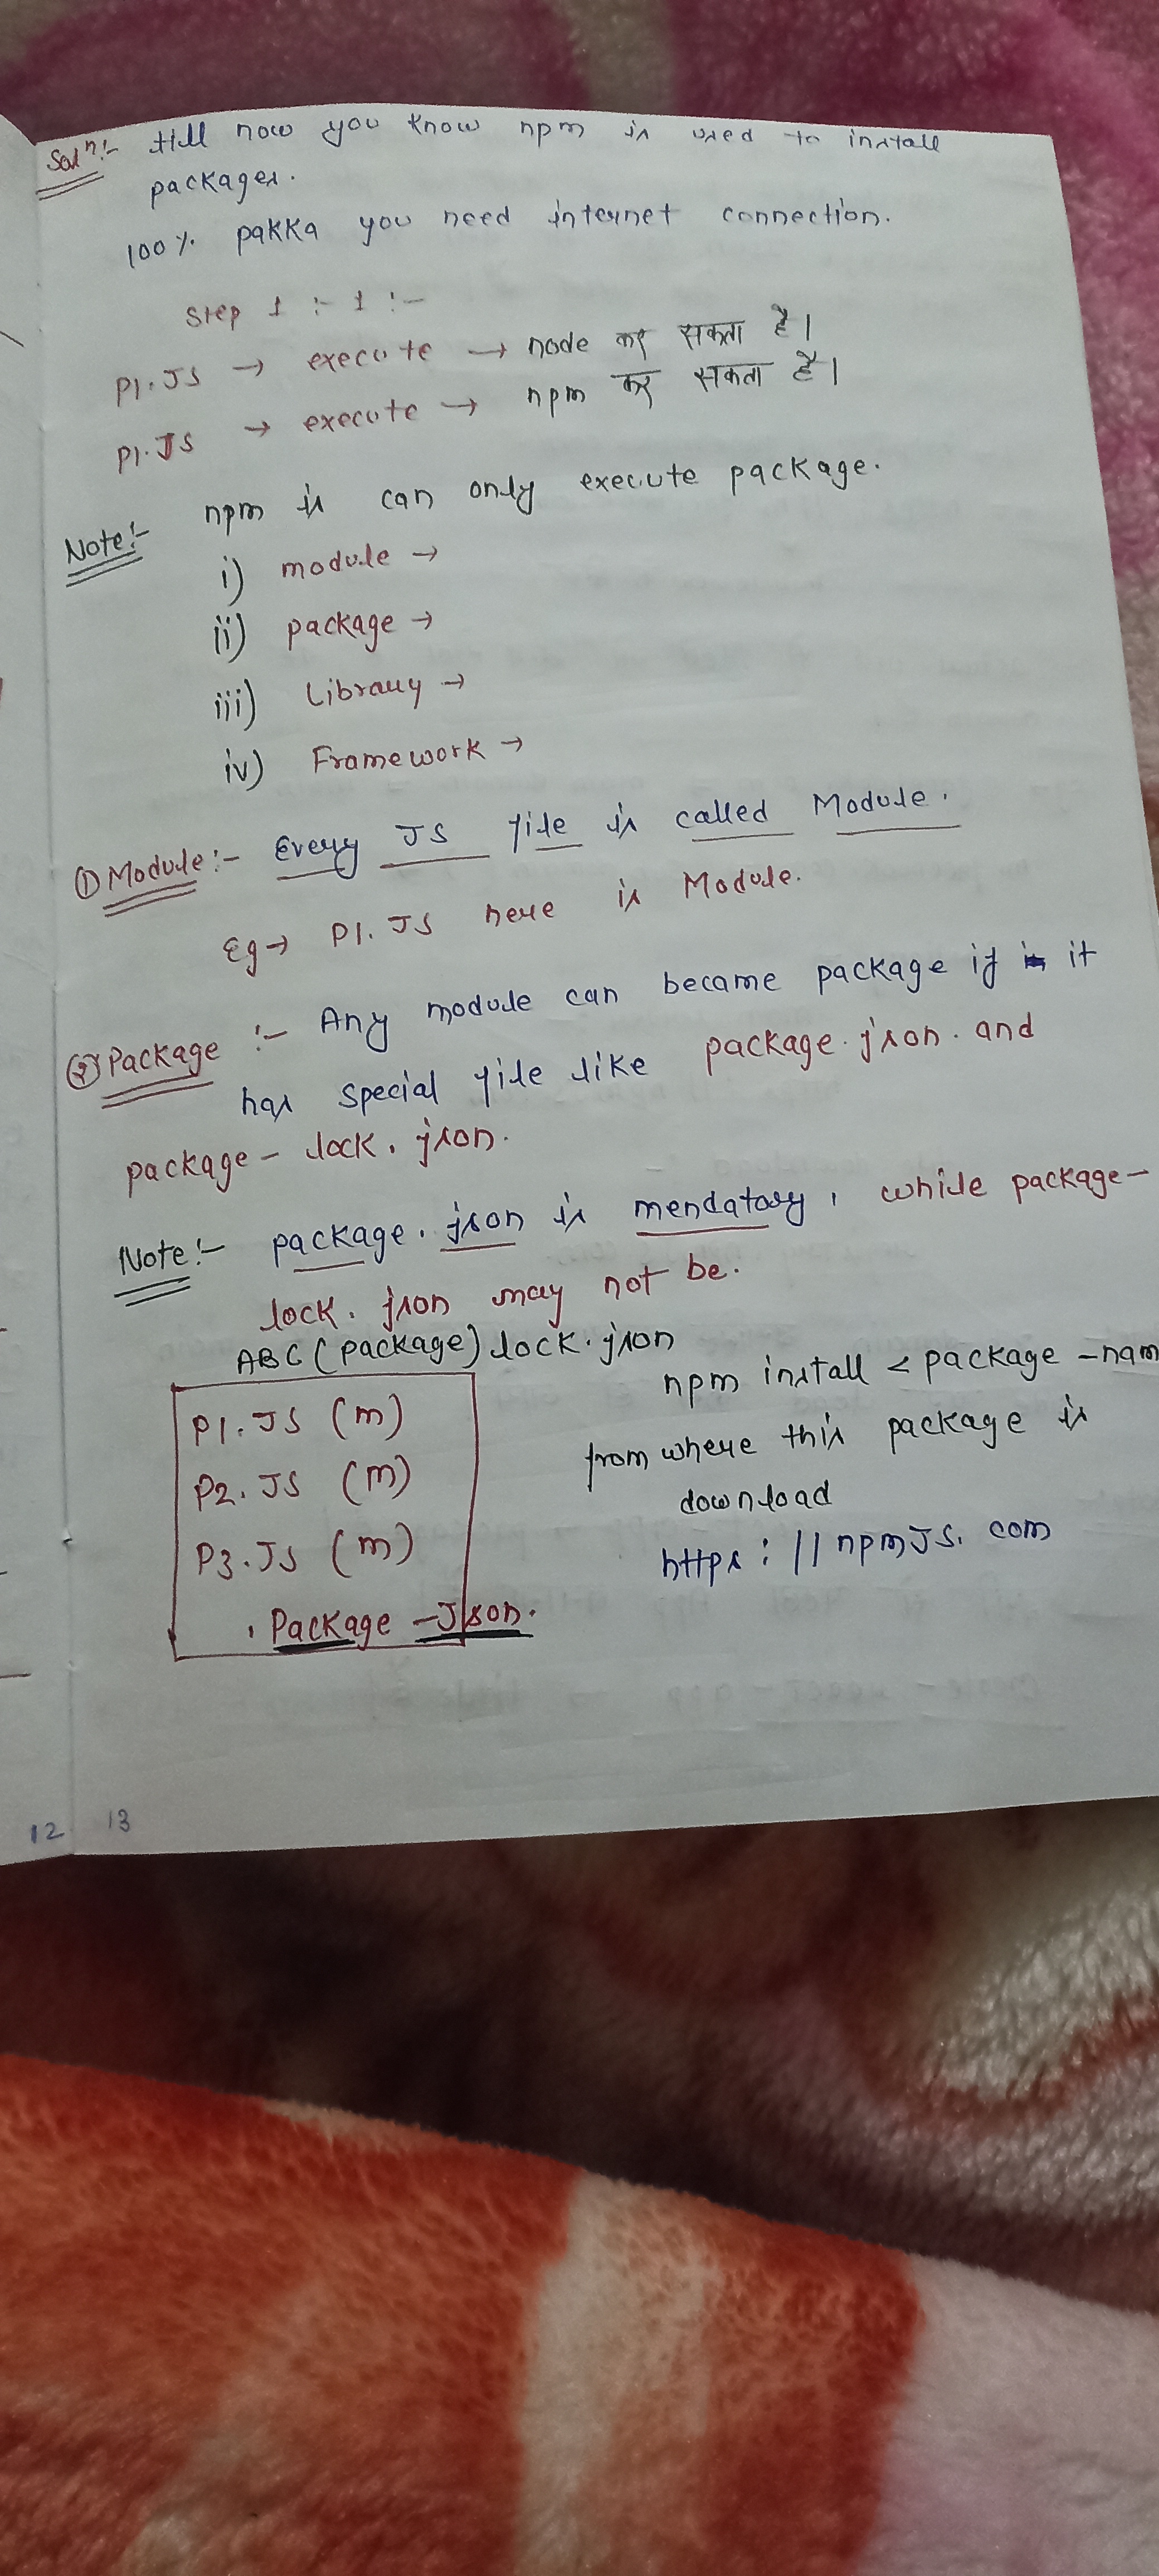 Solⁿ:- till now you know npm is used to install
packages.
100% pakka you need internet connection.
Step 1 :- 1 :-
P1.JS → execute → node कर सकता है।
P1.JS → execute → npm कर सकता है।
Note:- npm is can only execute package.
i) module →
ii) package →
iii) Library →
iv) Framework →
① Module:- Every JS file is called Module.
Eg→ P1.JS here is Module.
② Package :- Any module can became package if it
has special file like package.json. and
package-lock.json.
Note:- package.json is mendatory, while package-
lock.json may not be.
ABC (package) lock.json
P1.JS (m)
P2.JS (m)
P3.JS (m)
. Package -Json.
npm install < package -nam
from where this package is
download
https://npmJS.com
12 13